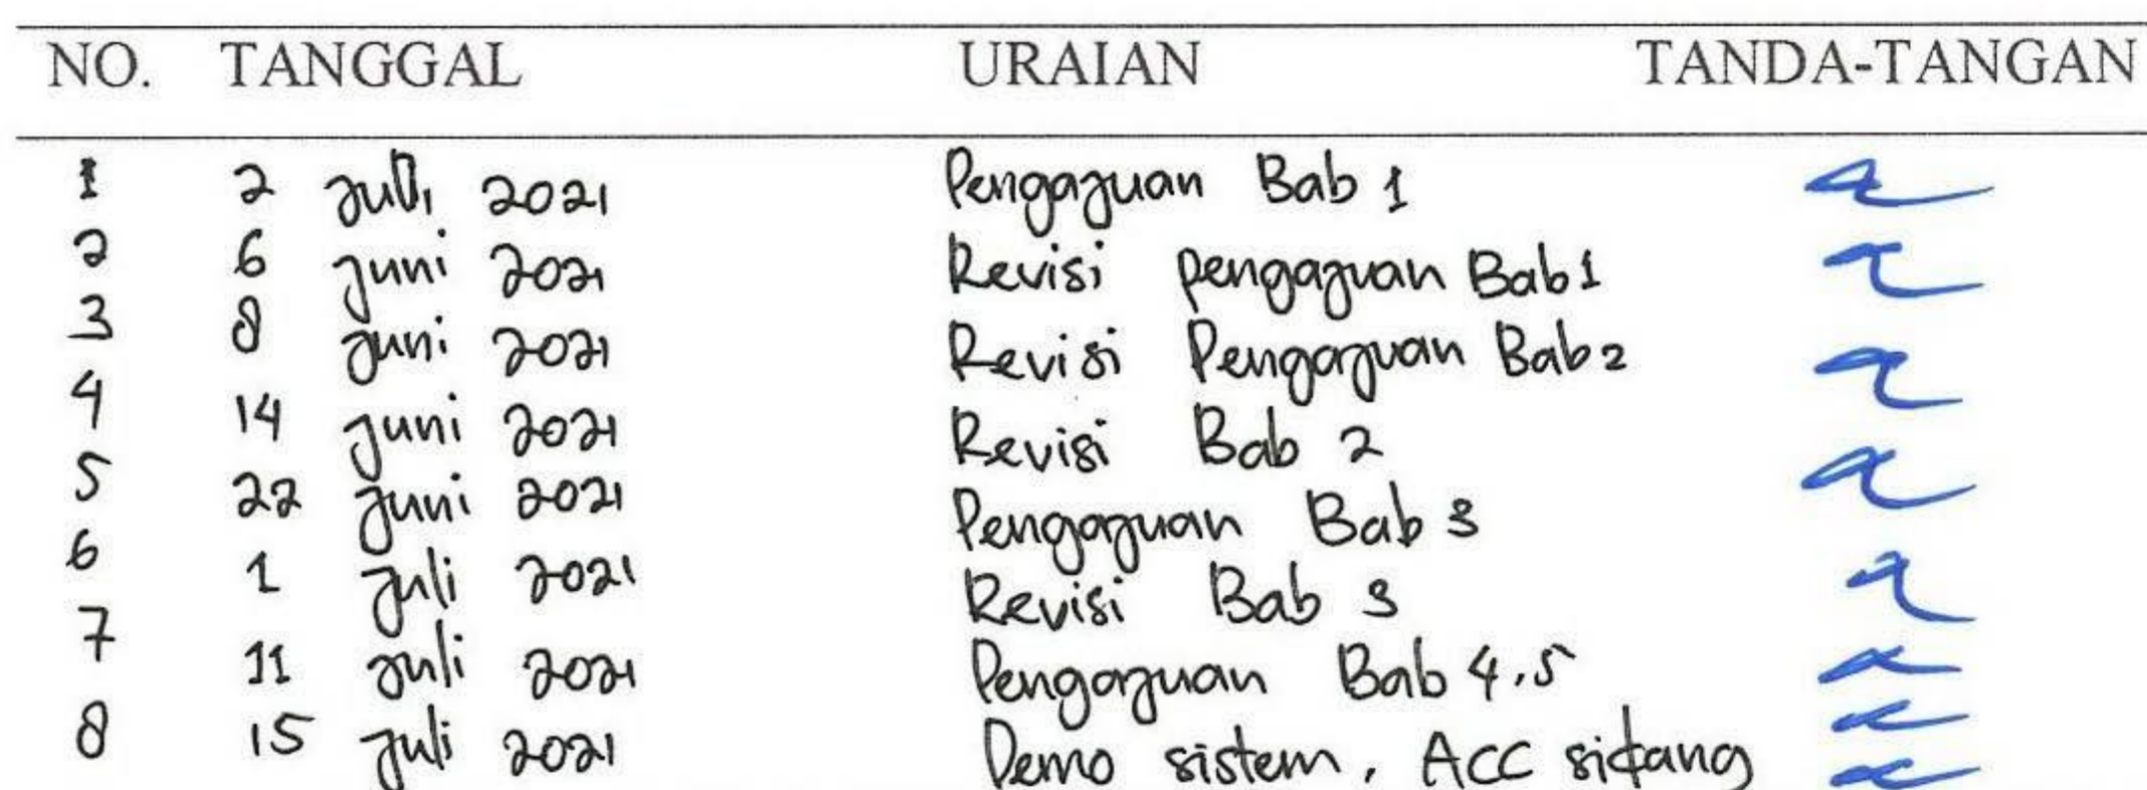 NO. TANGGAL URAIAN TANDA-TANGAN
1 2 Juli 2021 Pengajuan Bab 1
2 6 Juni 2021 Revisi pengajuan Bab 1
3 8 Juni 2021 Revisi Pengajuan Bab 2
4 14 Juni 2021 Revisi Bab 2
5 22 Juni 2021 Pengajuan Bab 3
6 1 Juli 2021 Revisi Bab 3
7 11 Juli 2021 Pengajuan Bab 4,5
8 15 Juli 2021 Demo sistem, ACC sidang